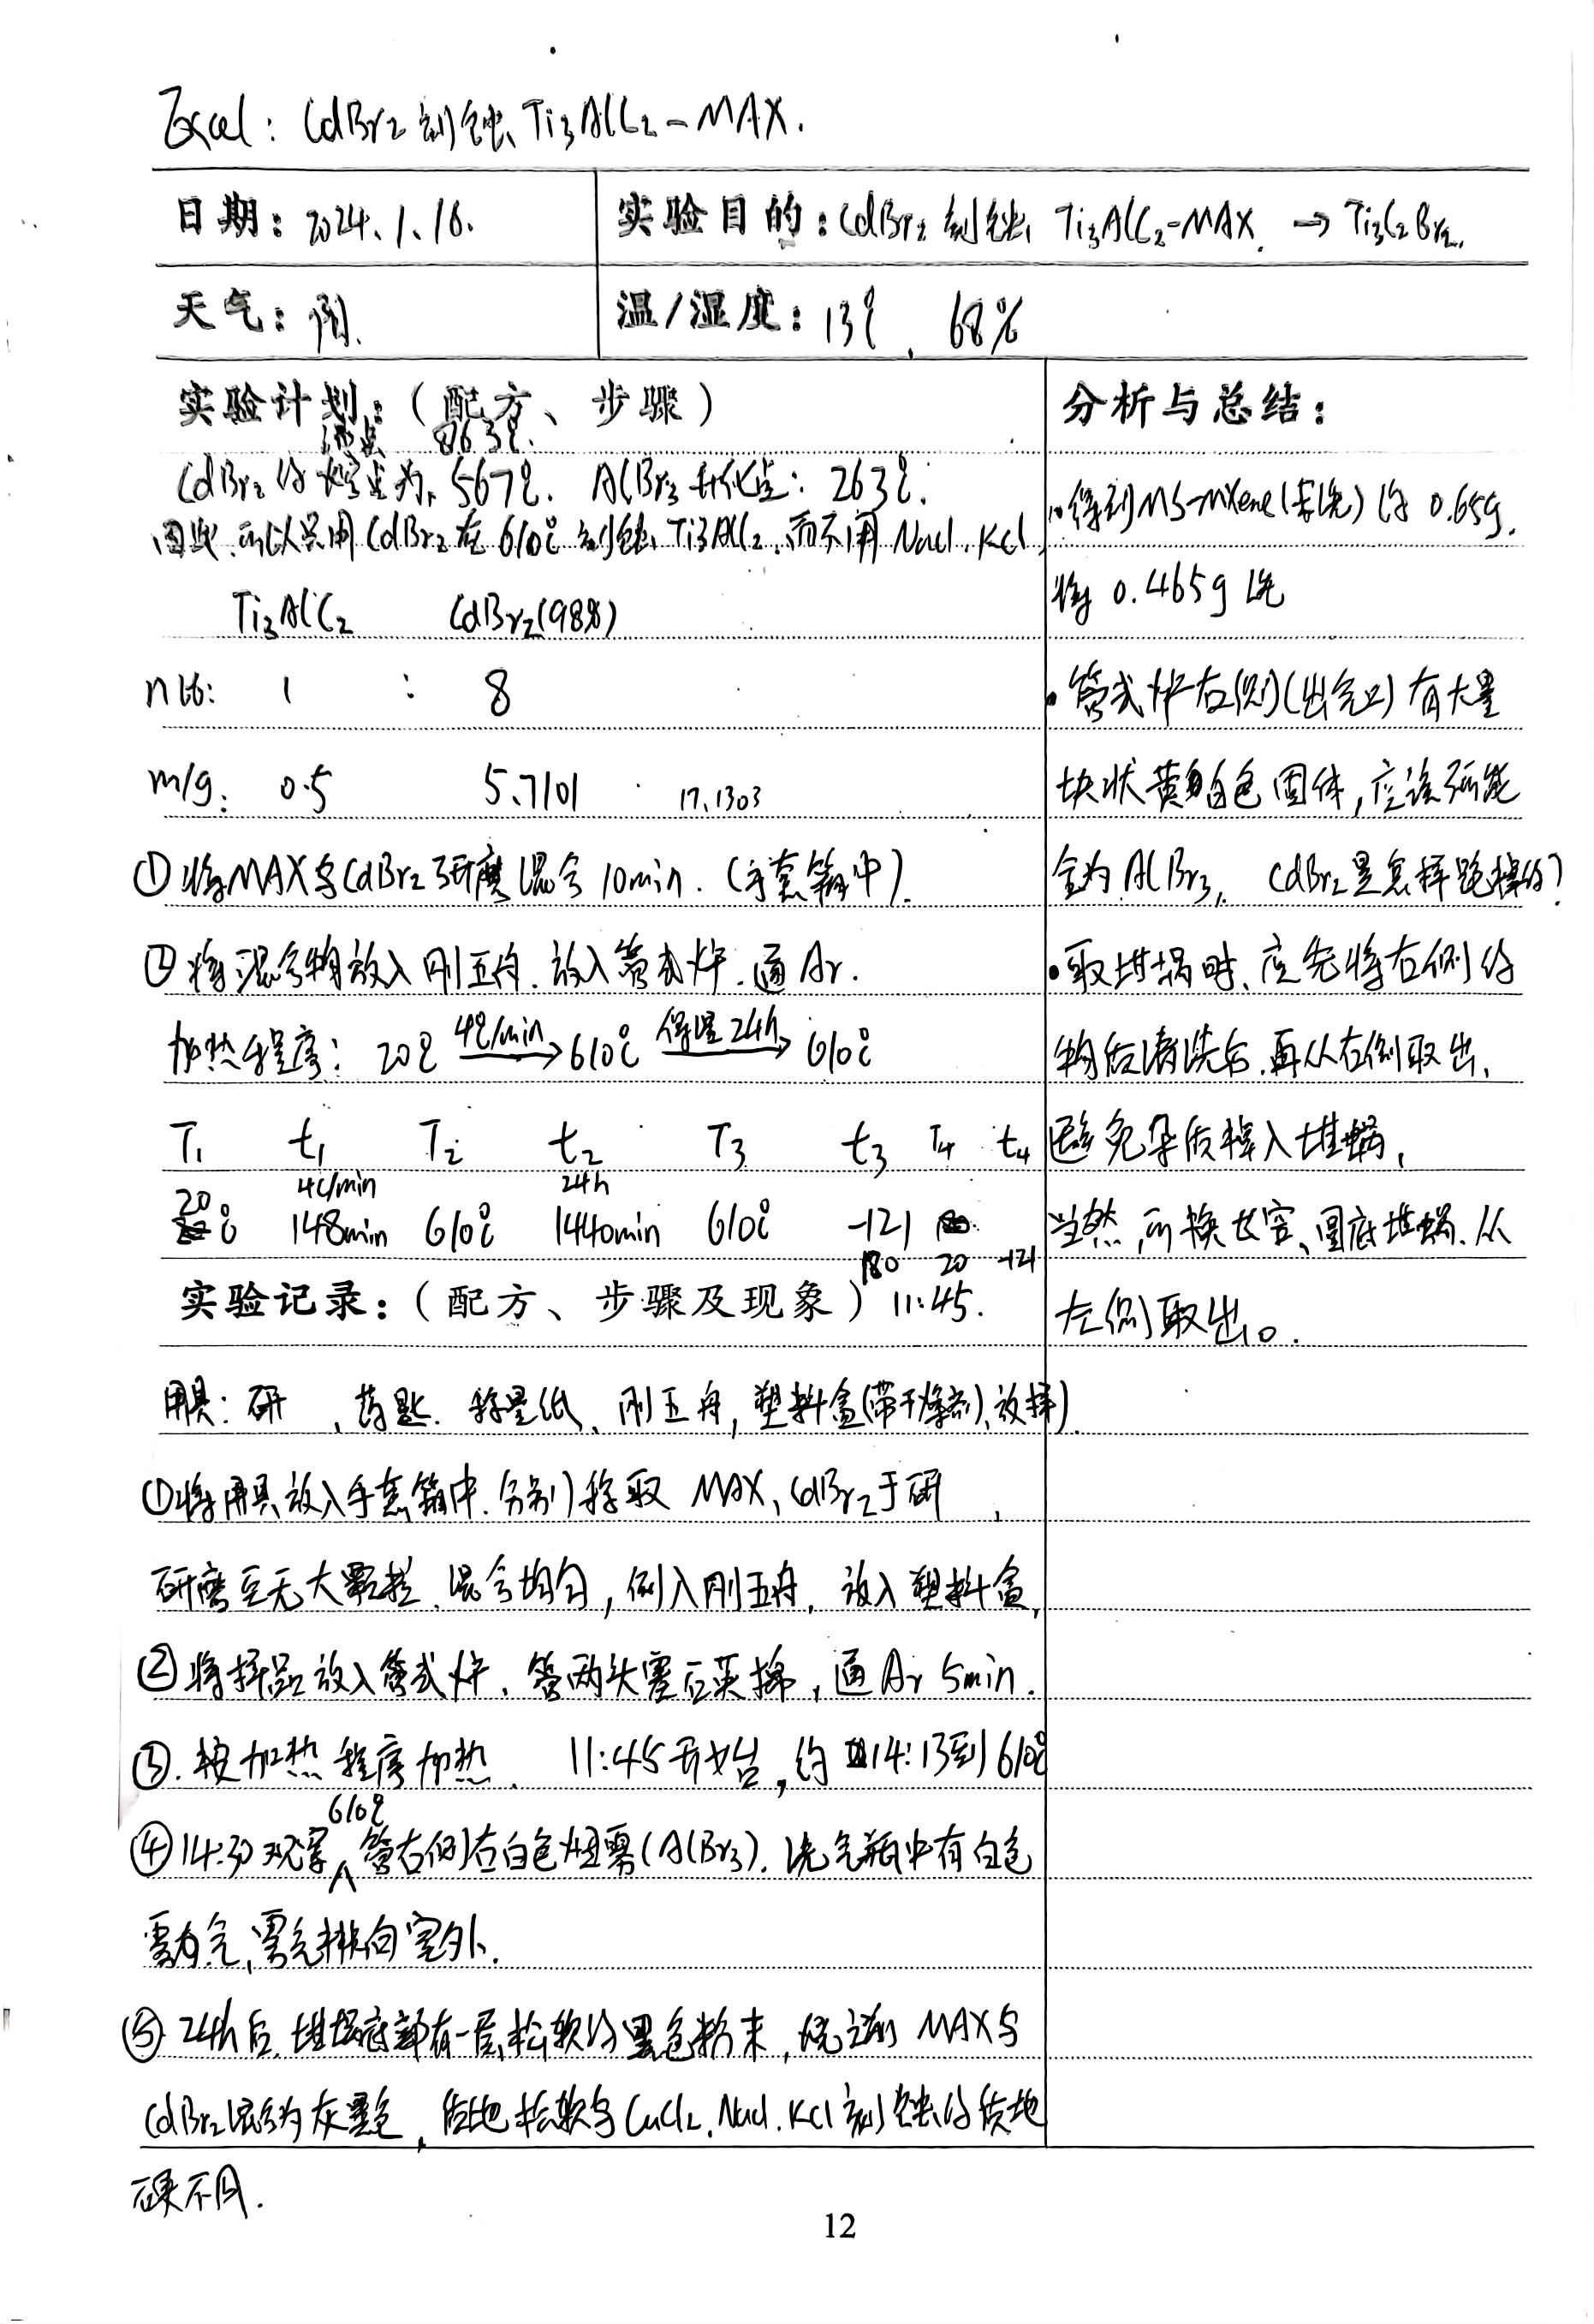 Excel: CdBr2 刻蚀 Ti3AlC2-MAX.
日期: 2024.1.16. 实验目的: CdBr2 刻蚀 Ti3AlC2-MAX. → Ti3C2Br2.
天气: 阴. 温/湿度: 13℃, 68%
实验计划:(配方、步骤)
沸点 863℃.
CdBr2 的熔点为 567℃. AlBr3 升华点: 263℃.
因此,所以只用 CdBr2 在 610℃ 刻蚀 Ti3AlC2, 而不用 NaCl, KCl
Ti3AlC2 CdBr2(98%)
n比: 1 : 8
m/g: 0.5 5.7101 17.1303
①将MAX与CdBr2研磨混合 10min. (手套箱中).
②将混合物放入刚玉舟. 放入管式炉. 通 Ar.
加热程序: 20℃ 4℃/min→ 610℃ 保温24h→ 610℃
T1 t1 T2 t2 T3 t3 T4 t4
4℃/min 24h
20℃ 148min 610℃ 1440min 610℃ -121
180 20 -121
实验记录:(配方、步骤及现象) 11:45.
用具: 研 , 药匙. 称量纸、刚玉舟, 塑料盒(带干燥剂、放样).
①将用具放入手套箱中. 分别称取 MAX、CdBr2于研 ,
研磨至无大颗粒. 混合均匀, 倒入刚玉舟, 放入塑料盒,
②将样品放入管式炉、管两头塞石英棉, 通 Ar 5min.
③. 按加热程序加热. 11:45开始, 约14:13到610℃
610℃
④14:30 观察 管右侧有白色烟雾(AlBr3). 洗气瓶中有白色
雾气, 雾气排向室外.
⑤ 24h后. 坩埚底部有一层松软的黑色粉末, 烧之前 MAX与
CdBr2混合为灰黑色, 质地松软与 CuCl2. NaCl. KCl 刻蚀的质地
硬不同.
分析与总结:
•得到MS-MXene(未洗)的 0.65g.
将 0.465g 洗
•管式炉右侧(出气口)有大量
块状黄白色固体, 应该不能
全为 AlBr3, CdBr2是怎样跑掉的?
•取坩埚时、应先将右侧的
物质清洗后. 再从右侧取出,
避免杂质掉入坩埚,
当然, 可换大容、圆底坩埚. 从
左侧取出。
12